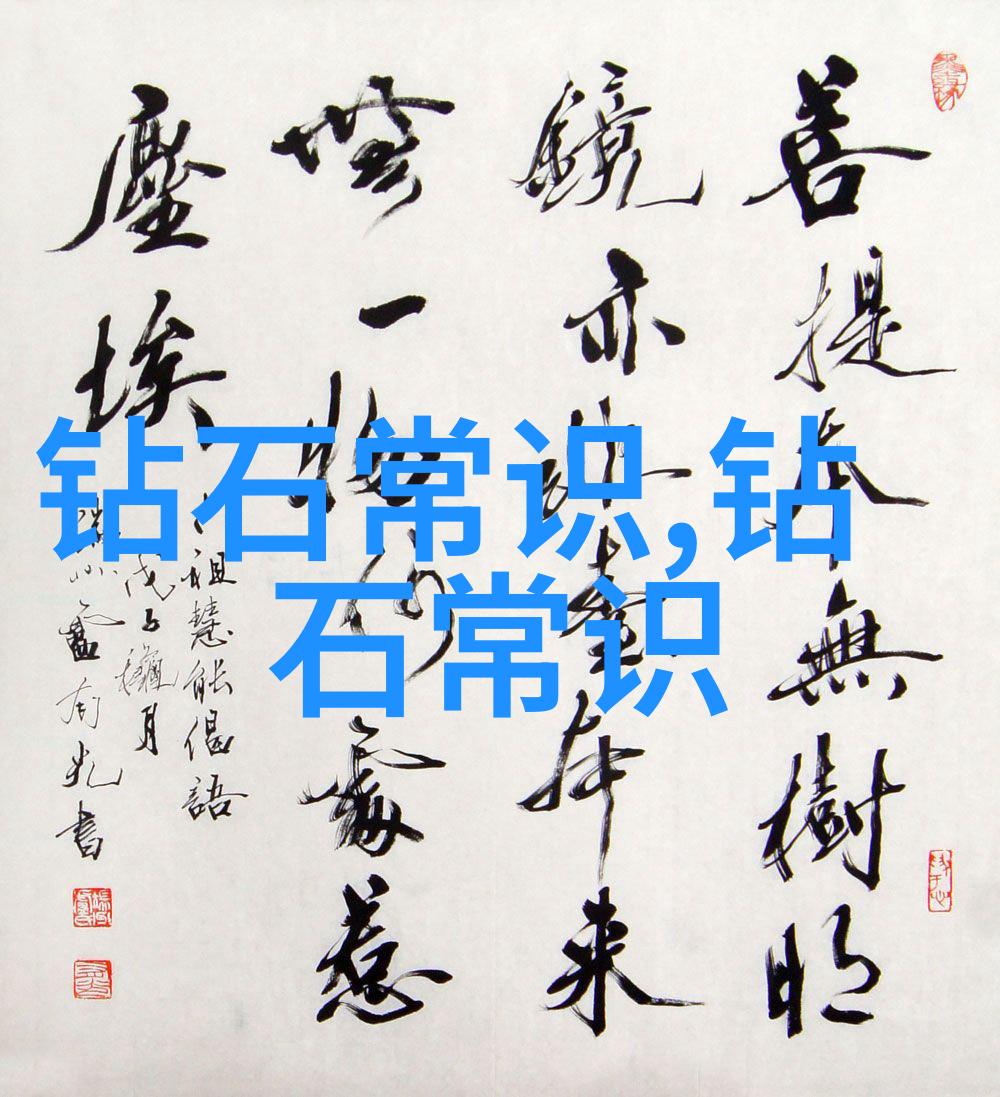 菩提本無樹明
鏡亦非臺本来
無一物何處惹
塵埃
祖慧能偈語
戊子 月
書
钻石常识,钻
石常识